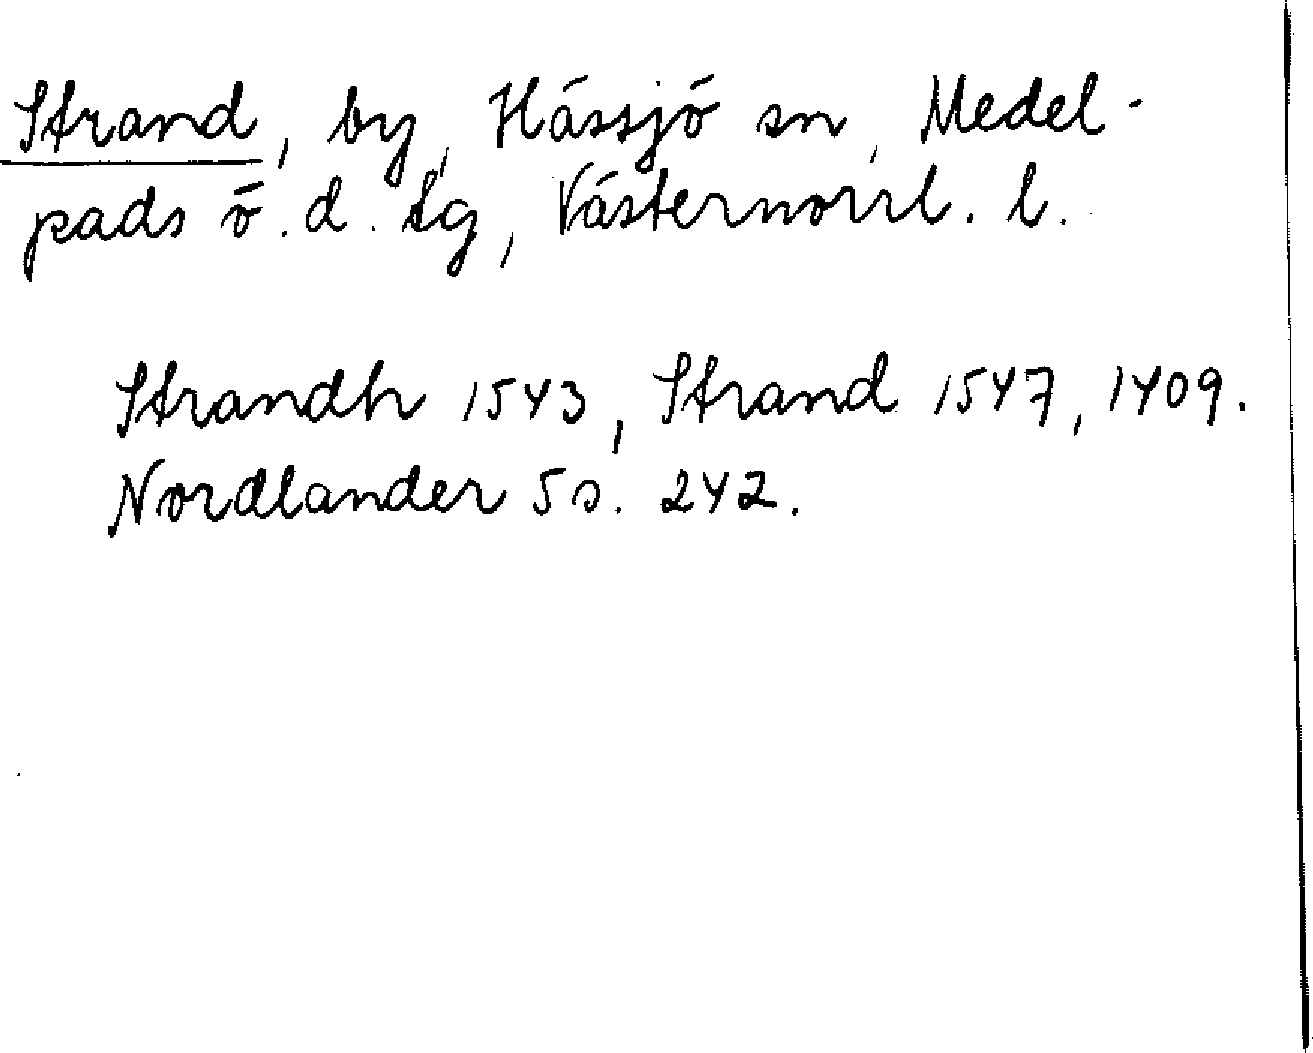 Strand, by, Hässjö sn, Medel-
pads ö. d. tg, Västernorrl. l.
Strandh 1543, Strand 1547, 1409.
Nordlander 5 s. 242.